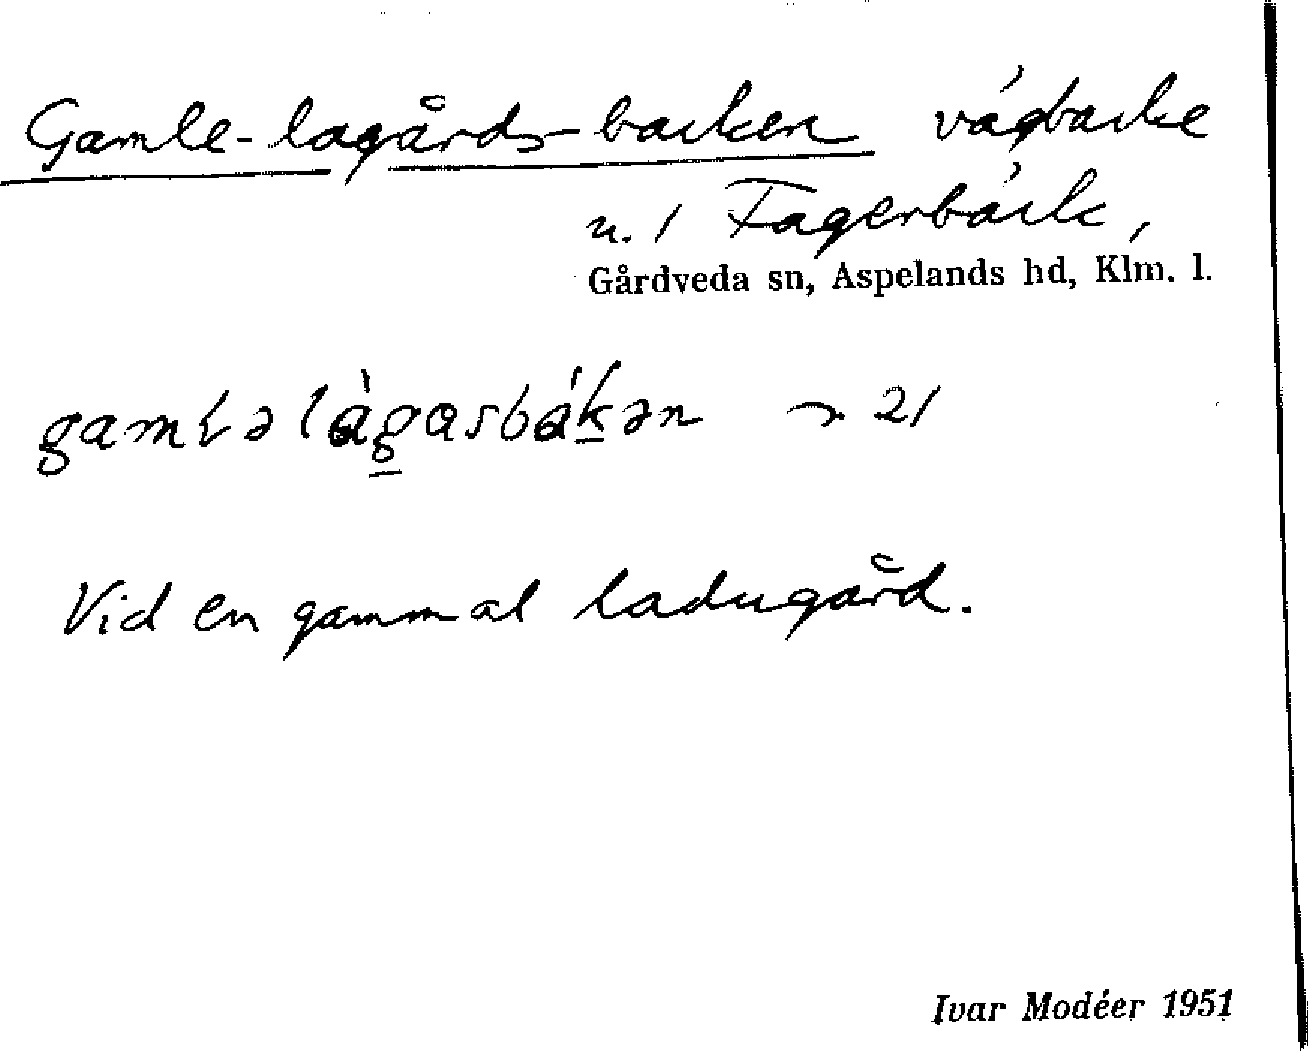 Gamle-lagårds-backen vägbacke
u. 1 Fagerbäck,
Gårdveda sn, Aspelands hd, Klm. l.
Vid en gammal ladugård.
Ivar Modéer 1951